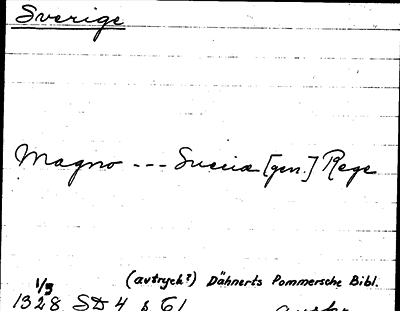 Sverige
Magno --- Sueciæ [gen.] Rege
(avtryck?) Dähnerts Pommersche Bibl.
1/9
1328 SD 4 s 61